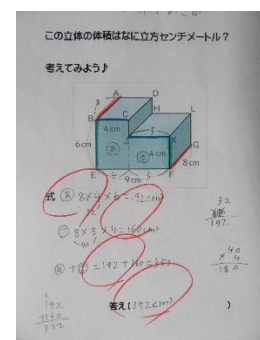 この立体の体積はなに立方センチメートル？
考えてみよう♪
A
D
B
C
H
L
4cm
K
6cm
4cm
G
8cm
E
4
5
F
9cm
式 あ 8×4×6=192cm³
32
い 8×5×4=160cm³
40
あ+い=192+160=352
32
192
40
× 4
192
+160
352
答え(352cm³)